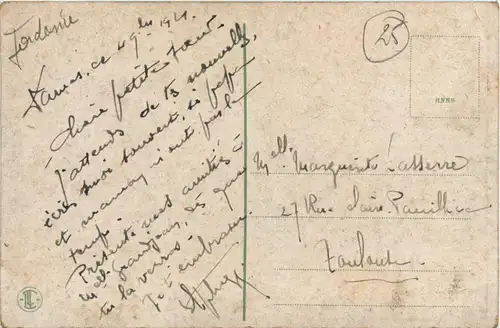 Jordanie
Damas, ce 4 9bre 1921
Chère petite sœur
J'attends de tes nouvelles,
écris moi souvent, si papa
et maman n'ont pas le
temps.
Présente mes amitiés à
quand
tu la verras.
Je t'embrasse.
25
Mell. Marguerite Lasserre
27 Rue
Toulouse